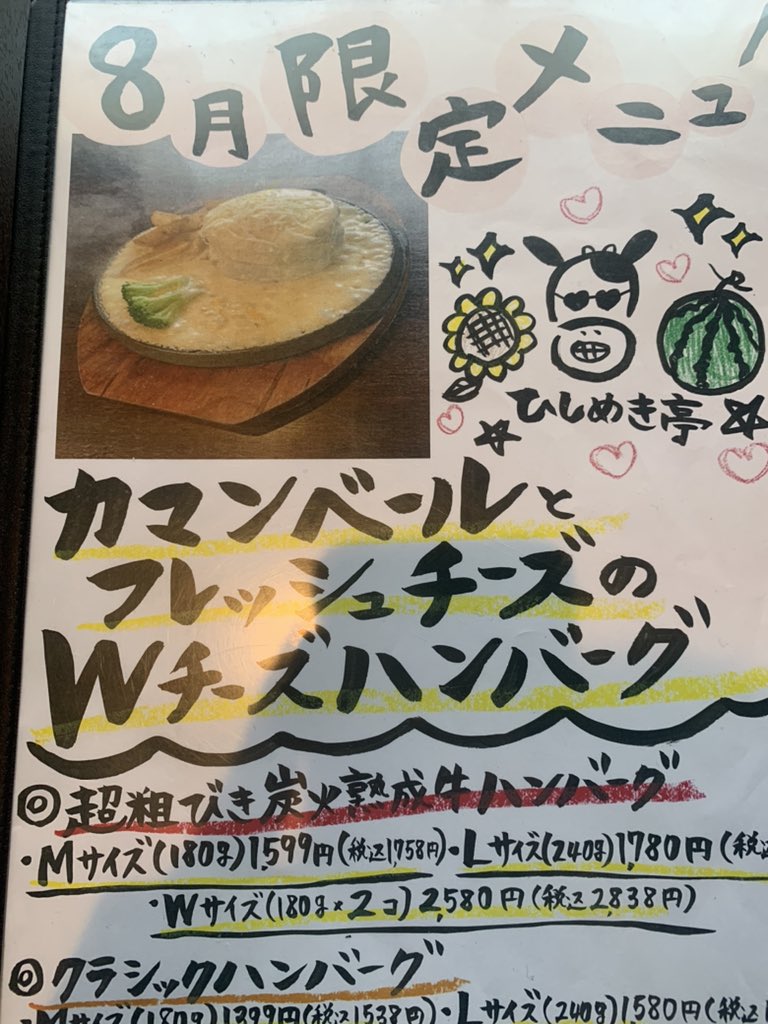 8月限定メニュー
ひしめき亭
カマンベールと
フレッシュチーズの
Wチーズハンバーグ
◎超粗びき炭火熟成牛ハンバーグ
・Mサイズ(180g)1,599円(税込1,758円)・Lサイズ(240g)1,780円(税込
・Wサイズ(180g×2コ)2,580円(税込2,838円)
◎クラシックハンバーグ
・Mサイズ(180g)1,399円(税込1,538円)・Lサイズ(240g)1,580円(税込